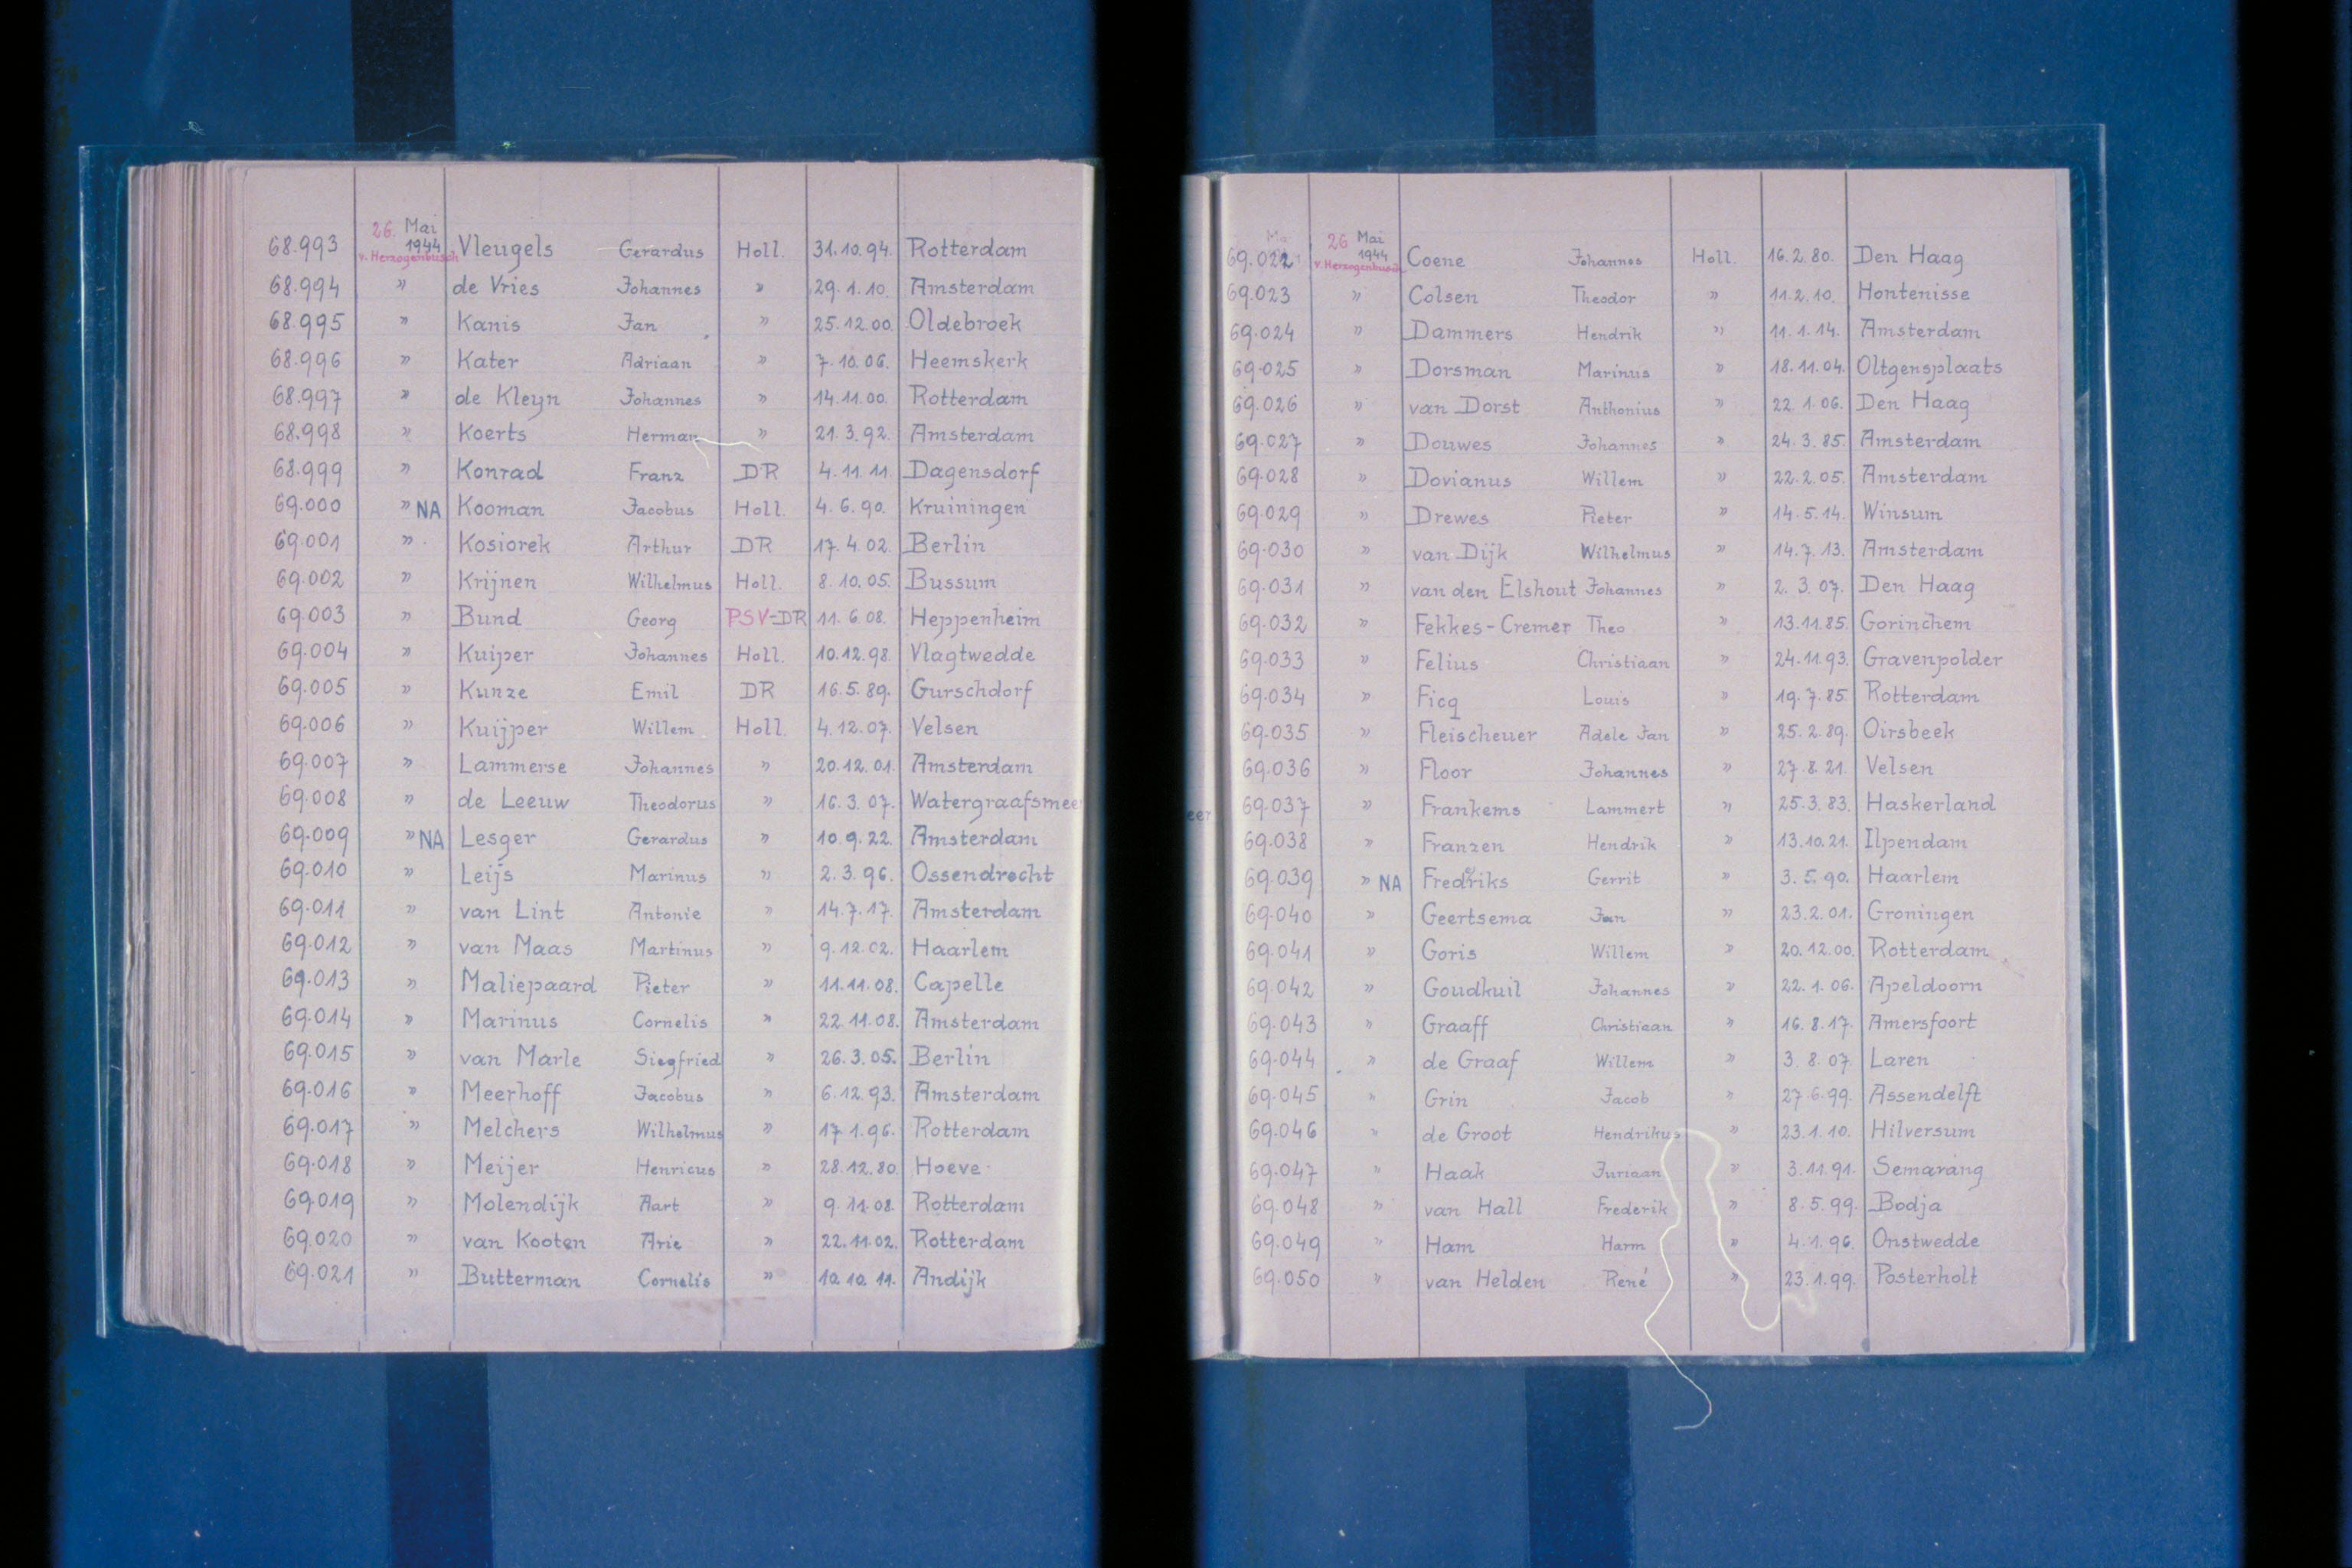 68.993 26. Mai 1944 v. Herzogenbusch Vleugels Gerardus Holl. 31.10.94. Rotterdam
68.994 " de Vries Johannes " 29.1.10. Amsterdam
68.995 " Kanis Jan " 25.12.00. Oldebroek
68.996 " Kater Adriaan " 7.10.06. Heemskerk
68.997 " de Kleyn Johannes " 14.11.00. Rotterdam
68.998 " Koerts Herman " 21.3.92. Amsterdam
68.999 " Konrad Franz DR 4.11.11. Dagensdorf
69.000 " NA Kooman Jacobus Holl. 4.6.90. Kruiningen
69.001 " Kosiorek Arthur DR 17.4.02. Berlin
69.002 " Krijnen Wilhelmus Holl. 8.10.05. Bussum
69.003 " Bund Georg PSV-DR 11.6.08. Heppenheim
69.004 " Kuiper Johannes Holl. 10.12.98. Vlagtwedde
69.005 " Kunze Emil DR 16.5.89. Gurschdorf
69.006 " Kuijper Willem Holl. 4.12.07. Velsen
69.007 " Lammerse Johannes " 20.12.01. Amsterdam
69.008 " de Leeuw Theodorus " 16.3.07. Watergraafsmeer
69.009 " NA Lesger Gerardus " 10.9.22. Amsterdam
69.010 " Leijs Marinus " 2.3.96. Ossendrecht
69.011 " van Lint Antonie " 14.7.17. Amsterdam
69.012 " van Maas Martinus " 9.12.02. Haarlem
69.013 " Maliepaard Pieter " 11.11.08. Capelle
69.014 " Marinus Cornelis " 22.11.08. Amsterdam
69.015 " van Marle Siegfried " 26.3.05. Berlin
69.016 " Meerhoff Jacobus " 6.12.93. Amsterdam
69.017 " Melchers Wilhelmus " 17.1.96. Rotterdam
69.018 " Meijer Henricus " 28.12.80. Hoeve
69.019 " Molendijk Aart " 9.11.08. Rotterdam
69.020 " van Kooten Arie " 22.11.02. Rotterdam
69.021 " Butterman Cornelis " 10.10.11. Andijk
69.022 26 Mai 1944 v. Herzogenbusch Coene Johannes Holl. 16.2.80. Den Haag
69.023 " Colsen Theodor " 11.2.10. Hontenisse
69.024 " Dammers Hendrik " 11.1.14. Amsterdam
69.025 " Dorsman Marinus " 18.11.04. Oltgensplaats
69.026 " van Dorst Anthonius " 22.1.06. Den Haag
69.027 " Douwes Johannes " 24.3.85. Amsterdam
69.028 " Dovianus Willem " 22.2.05. Amsterdam
69.029 " Drewes Pieter " 14.5.14. Winsum
69.030 " van Dijk Wilhelmus " 14.7.13. Amsterdam
69.031 " van den Elshout Johannes " 2.3.07. Den Haag
69.032 " Fekkes-Cremer Theo " 13.11.85. Gorinchem
69.033 " Felius Christiaan " 24.11.93. Gravenpolder
69.034 " Ficq Louis " 19.7.85. Rotterdam
69.035 " Fleischeuer Adele Jan " 25.2.89. Oirsbeek
69.036 " Floor Johannes " 27.8.21. Velsen
69.037 " Frankems Lammert " 25.3.83. Haskerland
69.038 " Franzen Hendrik " 13.10.21. Ilpendam
69.039 " NA Fredriks Gerrit " 3.5.90. Haarlem
69.040 " Geertsema Jan " 23.2.01. Groningen
69.041 " Goris Willem " 20.12.00. Rotterdam
69.042 " Goudkuil Johannes " 22.1.06. Apeldoorn
69.043 " Graaff Christiaan " 16.8.17. Amersfoort
69.044 " de Graaf Willem " 3.8.07. Laren
69.045 " Grin Jacob " 27.6.99. Assendelft
69.046 " de Groot Hendrikus " 23.1.10. Hilversum
69.047 " Haak Juriaan " 3.11.91. Semarang
69.048 " van Hall Frederik " 8.5.99. Bodja
69.049 " Ham Harm " 4.1.96. Onstwedde
69.050 " van Helden René " 23.1.99. Posterholt